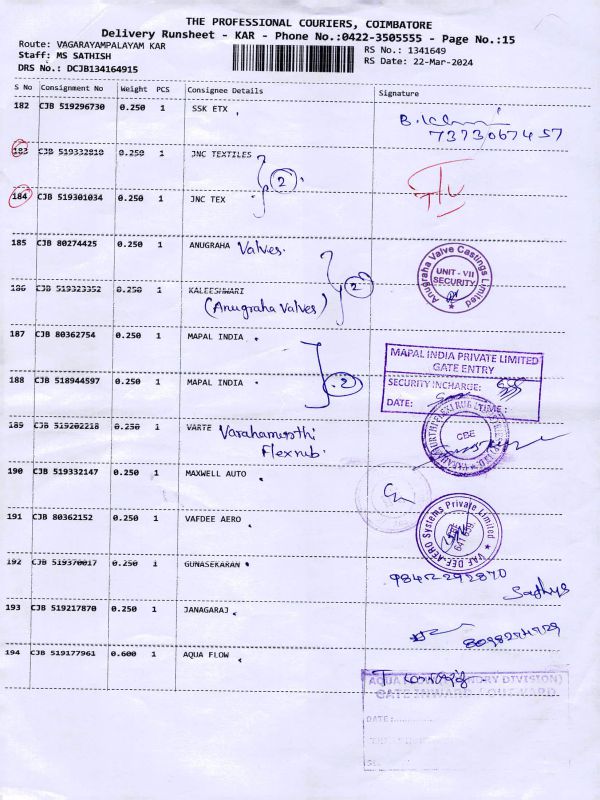 THE PROFESSIONAL COURIERS, COIMBATORE
Delivery Runsheet - KAR - Phone No.:0422-3505555 - Page No.:15
Route: VAGARAYAMPALAYAM KAR
RS No.: 1341649
Staff: MS SATHISH
RS Date: 22-Mar-2024
DRS No.: DCJB134164915
S No Consignment No Weight PCS Consignee Details Signature
182 CJB 519296730 0.250 1 SSK ETX
7373067457
183 CJB 519332810 0.250 1 JNC TEXTILES
2
184 CJB 519301034 0.250 1 JNC TEX
185 CJB 80274425 0.250 1 ANUGRAHA Valves.
Anugraha Valve Castings Limited
UNIT - VII
SECURITY
186 CJB 519323352 0.250 1 KALEESHWARI
2
(Anugraha Valves)
187 CJB 80362754 0.250 1 MAPAL INDIA
MAPAL INDIA PRIVATE LIMITED
GATE ENTRY
188 CJB 518944597 0.250 1 MAPAL INDIA
2
SECURITY INCHARGE:
DATE: TIME :
189 CJB 519202218 0.250 1 VARTE Varahamurthi
Flexrub.
CBE
190 CJB 519332147 0.250 1 MAXWELL AUTO
191 CJB 80362152 0.250 1 VAFDEE AERO
VAF DEE AERO Systems Private Limited
192 CJB 519370017 0.250 1 GUNASEKARAN
9842292870
Sathys
193 CJB 519217870 0.250 1 JANAGARAJ
194 CJB 519177961 0.600 1 AQUA FLOW
DATE: